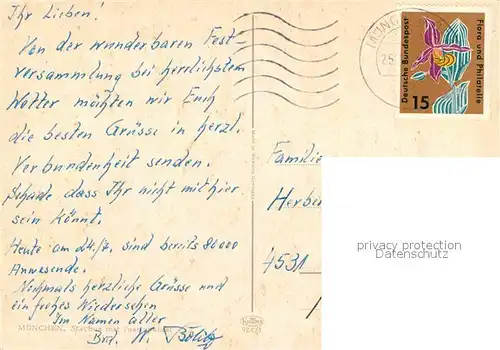 Ihr Lieben!
Von der wunderbaren Fest-
versammlung bei herrlichstem
Wetter möchten wir Euch
die besten Grüsse in herzl.
Verbundenheit senden.
Schade dass Ihr nicht mit hier
sein könnt.
Heute am 24./7. sind bereits 86000
Anwesende.
Nochmals herzliche Grüsse und
ein frohes Wiedersehen
Im Namen aller
Brd. H.
MÜNCHEN,
Deutsche Bundespost
Flora und Philatelie
15
Familie
Herber
4531
privacy protection
Datenschutz